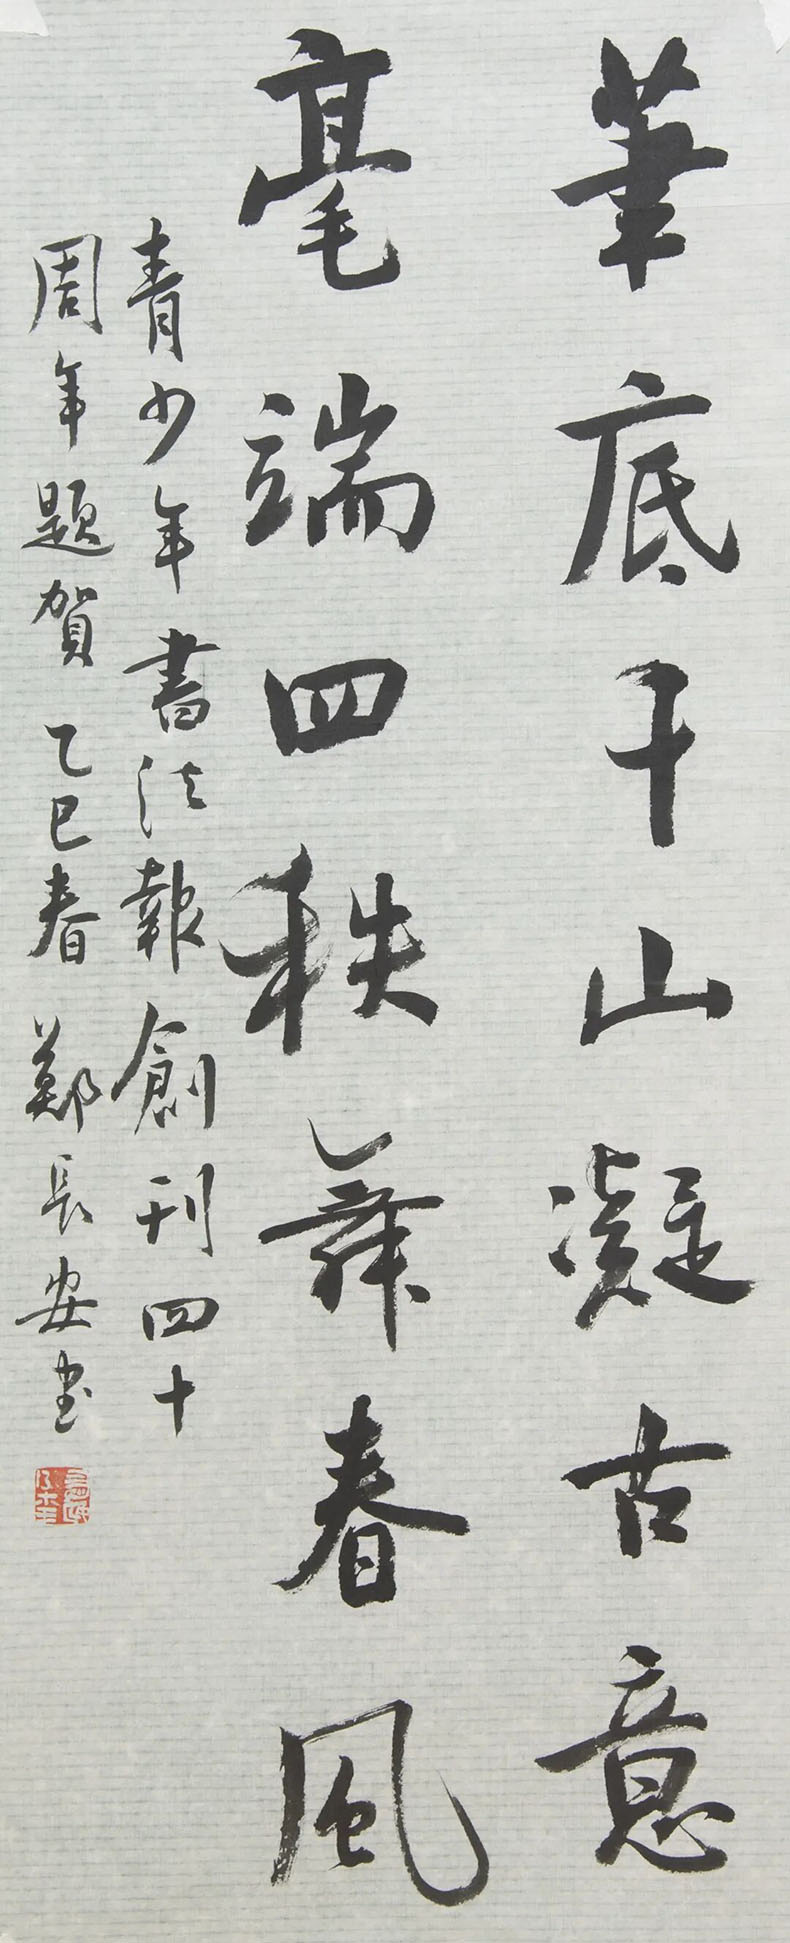 筆底千山凝古意
毫端四秩舞春風
青少年書法報創刊四十
周年題賀 乙巳春 鄭長安书